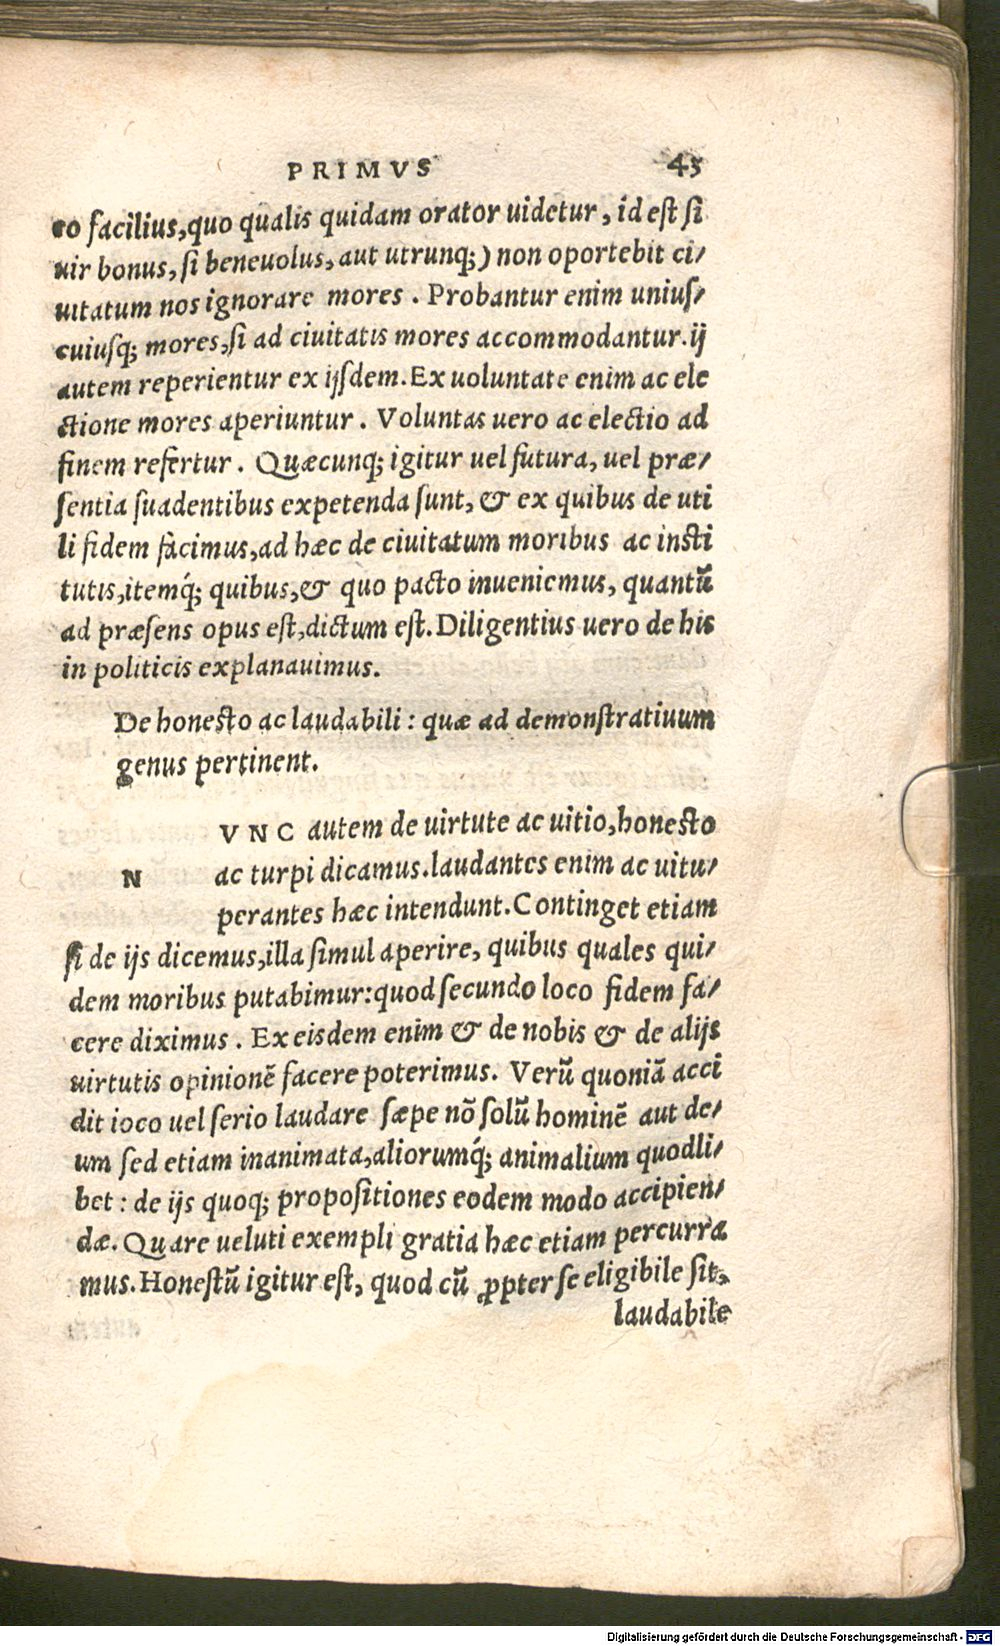 PRIMVS 43
eo facilius,quo qualis quidam orator uidetur, id est si
uir bonus, si beneuolus, aut utrunq;) non oportebit ci/
uitatum nos ignorare mores. Probantur enim unius/
cuiusq; mores,si ad ciuitatis mores accommodantur.ij
autem reperientur ex ijsdem. Ex uoluntate enim ac ele
ctione mores aperiuntur. Voluntas uero ac electio ad
finem refertur. Quæcunq; igitur uel futura, uel præ/
sentia suadentibus expetenda sunt, & ex quibus de uti
li fidem facimus,ad hæc de ciuitatum moribus ac insti
tutis,itemq́; quibus,& quo pacto inueniemus, quantũ
ad præsens opus est,dictum est. Diligentius uero de his
in politicis explanauimus.
De honesto ac laudabili: quæ ad demonstratiuum
genus pertinent.
VNC autem de uirtute ac uitio,honesto
N ac turpi dicamus.laudantes enim ac uitu/
perantes hæc intendunt. Continget etiam
si de ijs dicemus,illa simul aperire, quibus quales qui/
dem moribus putabimur:quod secundo loco fidem fa/
cere diximus. Ex eisdem enim & de nobis & de alijs
uirtutis opinionẽ facere poterimus. Verũ quoniã acci
dit ioco uel serio laudare sæpe nõ solũ hominẽ aut de/
um sed etiam inanimata,aliorumq́; animalium quodli/
bet: de ijs quoq; propositiones eodem modo accipien/
dæ. Quare ueluti exempli gratia hæc etiam percurra
mus. Honestũ igitur est, quod cũ ꝓpter se eligibile sit,
laudabile
Digitalisierung gefördert durch die Deutsche Forschungsgemeinschaft - DFG